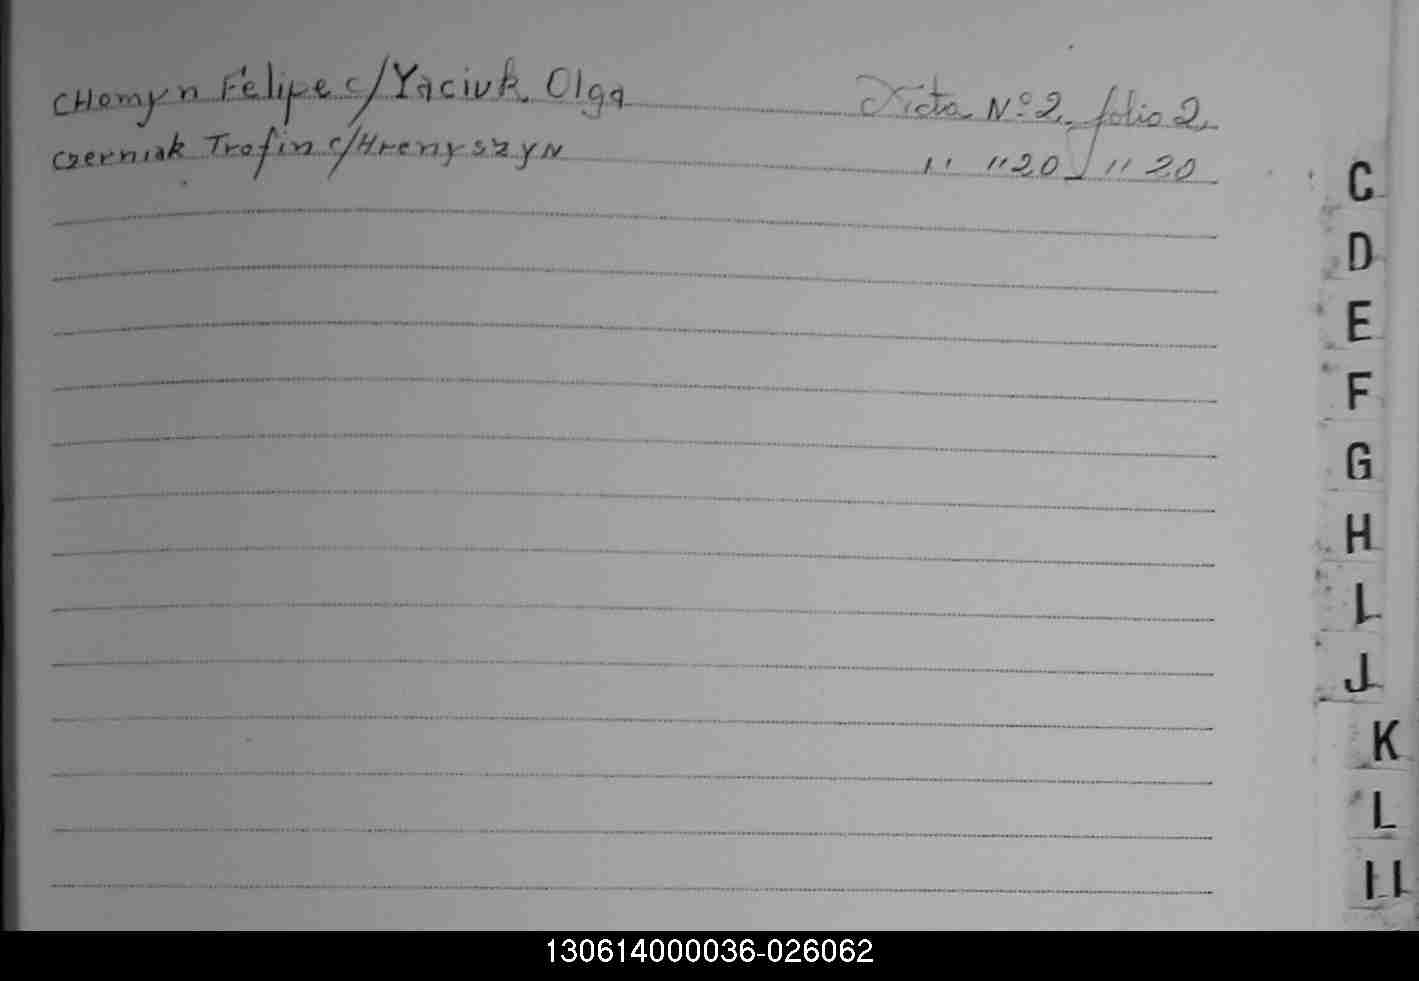 CHomyn Felipe c/Yaciuk Olga Acta Nº 2 folio 2
Czerniak Trofin c/HrenyszyN " " 20 " 20
C
D
E
F
G
H
I
J
K
L
LL
130614000036-026062